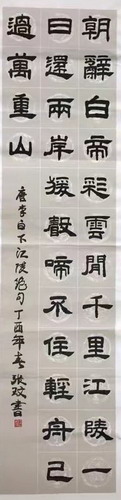 朝辭白帝彩雲間千里江陵一
日還兩岸猨聲啼不住輕舟已
過萬重山
唐李白下江陵絕句丁酉年春張玟書